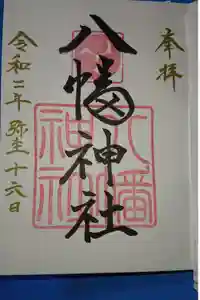 奉拝
八幡神社
八幡神社
令和二年 弥生 十六日